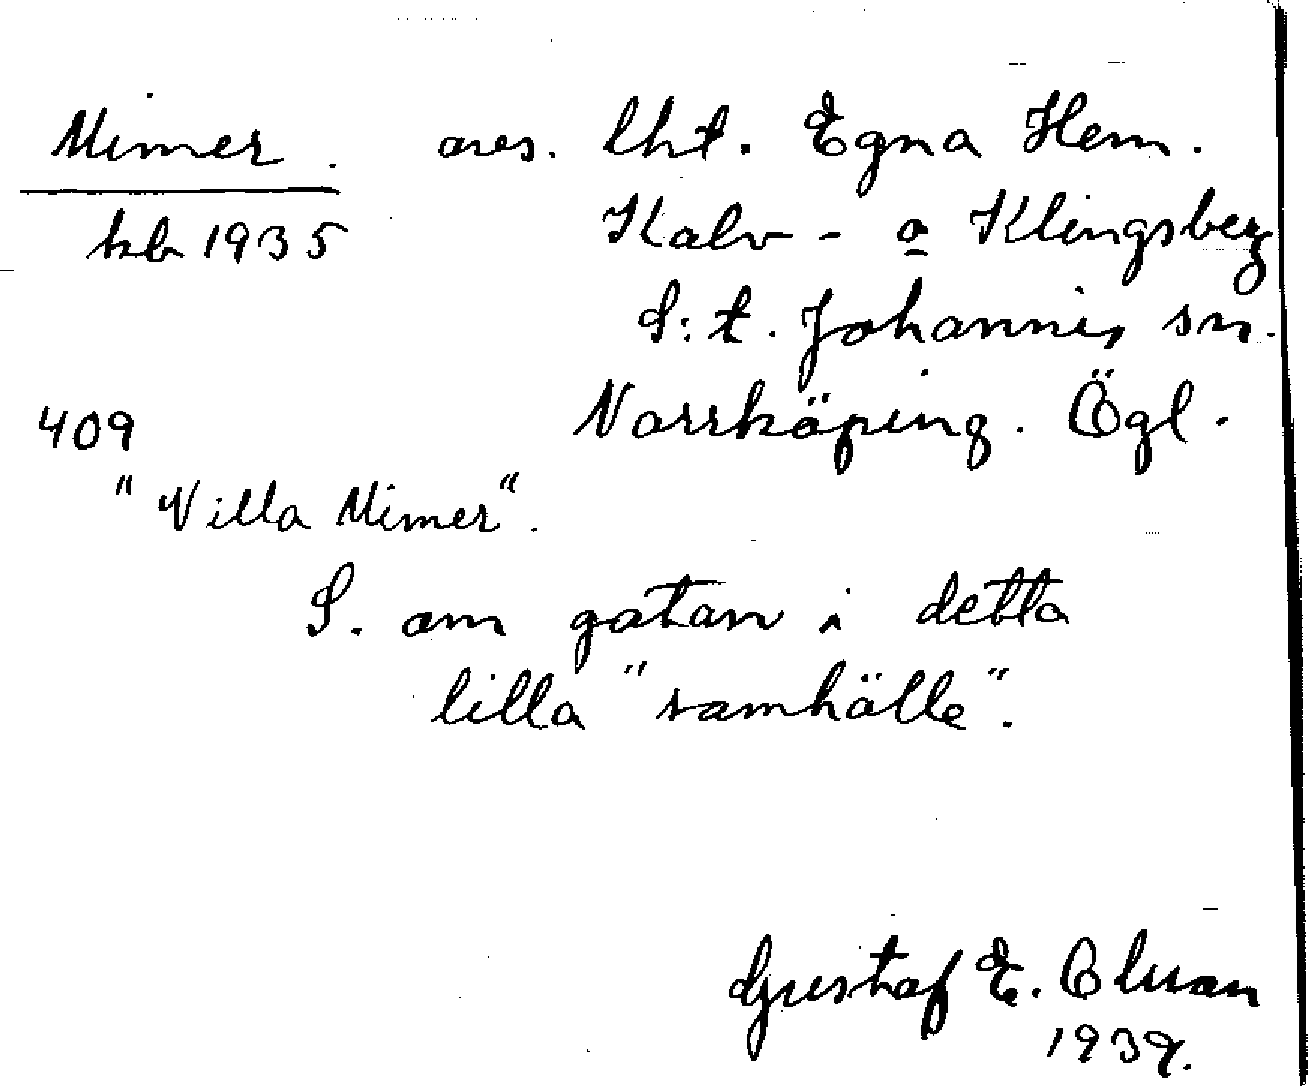 Mimer. aves. lht. Egna Hem.
kb 1935 Kalv- o Klingsberg
S:t. Johannis sn.
409 Norrköping. Ögl.
"Villa Mimer".
S. om gatan i detta
lilla "samhälle".
Gustaf E. Cluan
1939.